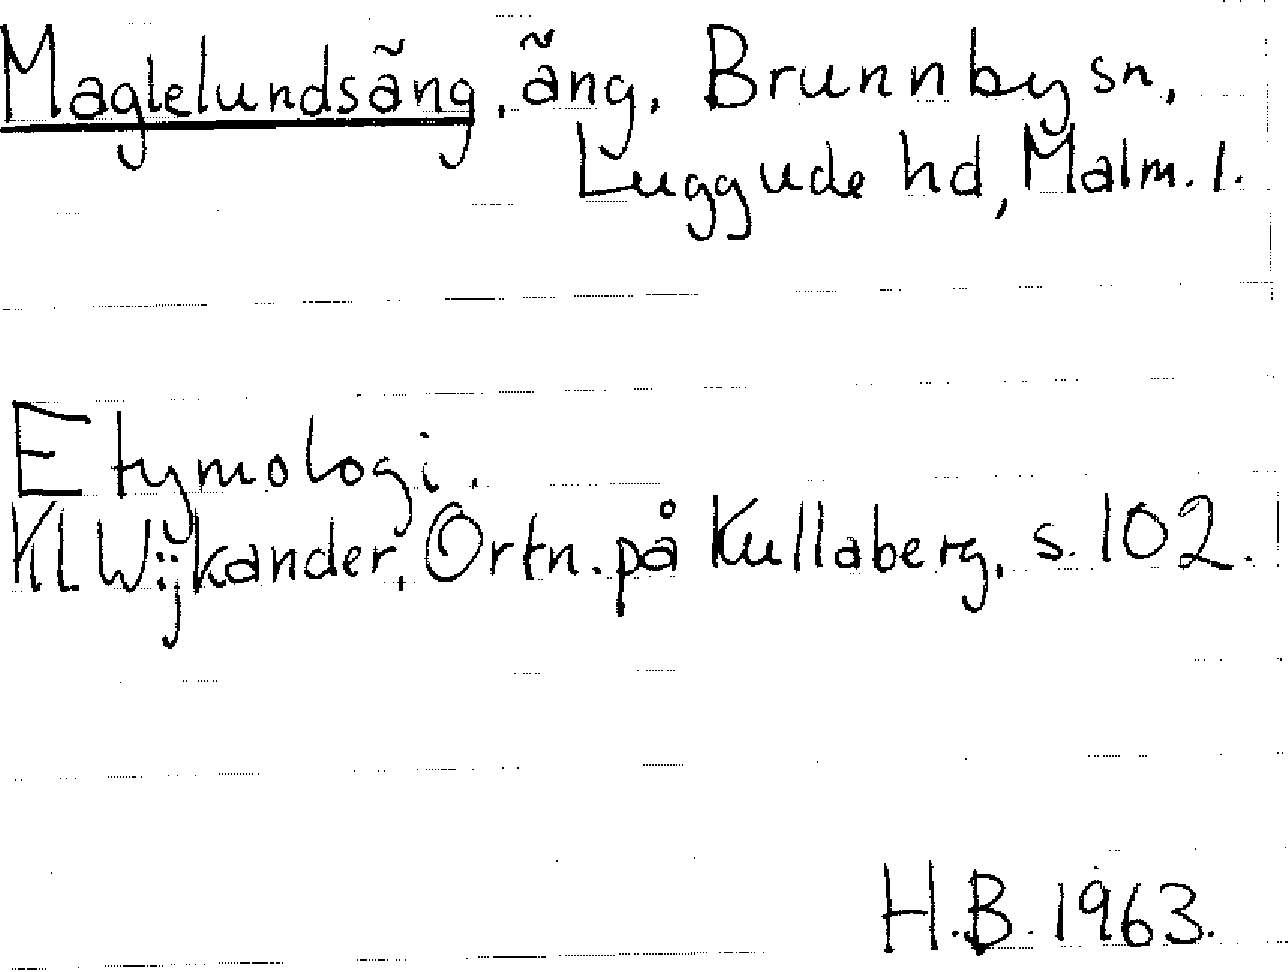 Maglelundsäng, äng, Brunnby sn,
Luggude hd, Malm. l.
Etymologi.
Kl Wijkander, Ortn. på Kullaberg, s. 102.
H.B. 1963.